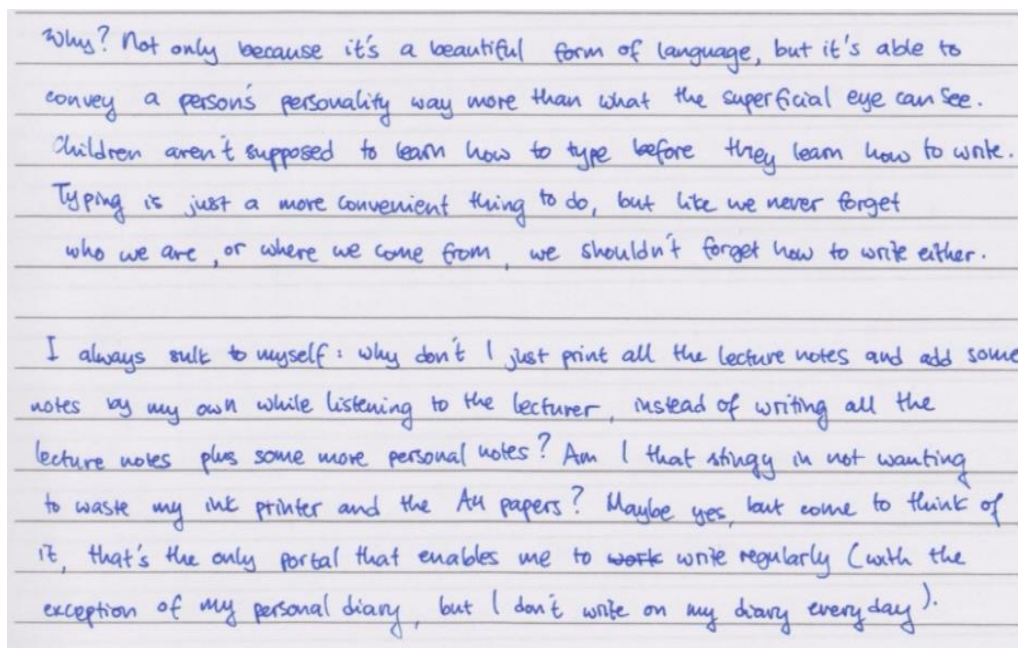 Why? Not only because it's a beautiful form of language, but it's able to
convey a person's personality way more than what the superficial eye can see.
Children aren't supposed to learn how to type before they learn how to write.
Typing is just a more convenient thing to do, but like we never forget
who we are, or where we come from, we shouldn't forget how to write either.
I always sulk to myself: why don't I just print all the lecture notes and add some
notes by my own while listening to the lecturer, instead of writing all the
lecture notes plus some more personal notes? Am I that stingy in not wanting
to waste my ink printer and the A4 papers? Maybe yes, but come to think of
it, that's the only portal that enables me to work write regularly (with the
exception of my personal diary, but I don't write on my diary everyday).